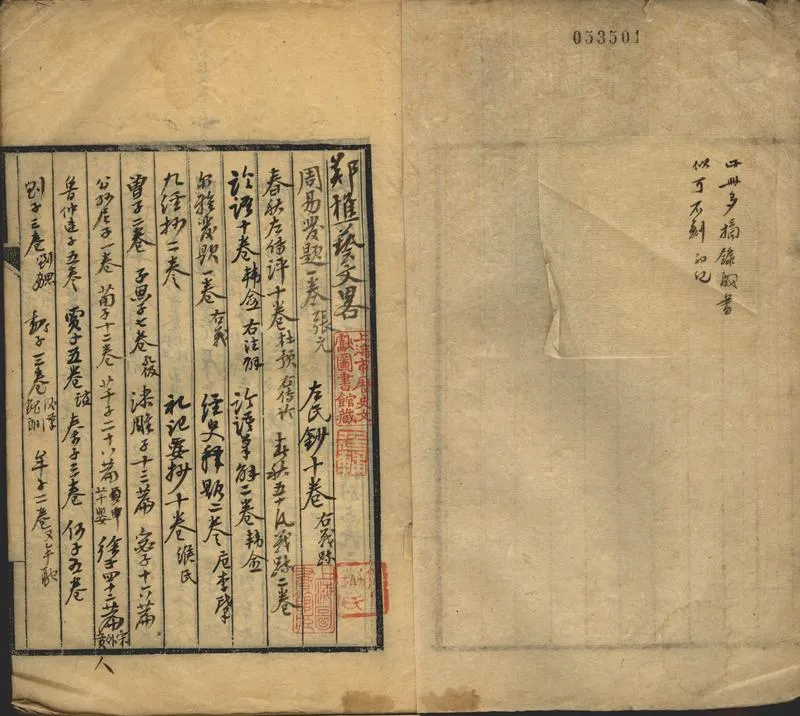 053501
此冊多摘錄成書
似可不刻 的記
鄭樵藝文畧
周易發題一卷張元 左氏鈔十卷右義疏
春秋左傳評十卷杜預右傳論 春秋五十凡義疏二卷
論語十卷韓愈右注解 論語筆解二卷韓愈
爾雅發題一卷右義 經史釋題二卷唐李肇
九經抄二卷 禮記要抄十卷緱氏
曾子二卷 子思子七卷 漆雕子十三篇 宓子十六篇
公孫尼子一卷 荀子十二卷 芊子二十六篇 徐子四十二篇宋外黃人
魯仲連子五卷 賈子五卷 秦子三卷 何子五卷
劉子三卷 三卷 牟子二卷
上海市歷史文獻圖書館藏
上海圖書館藏